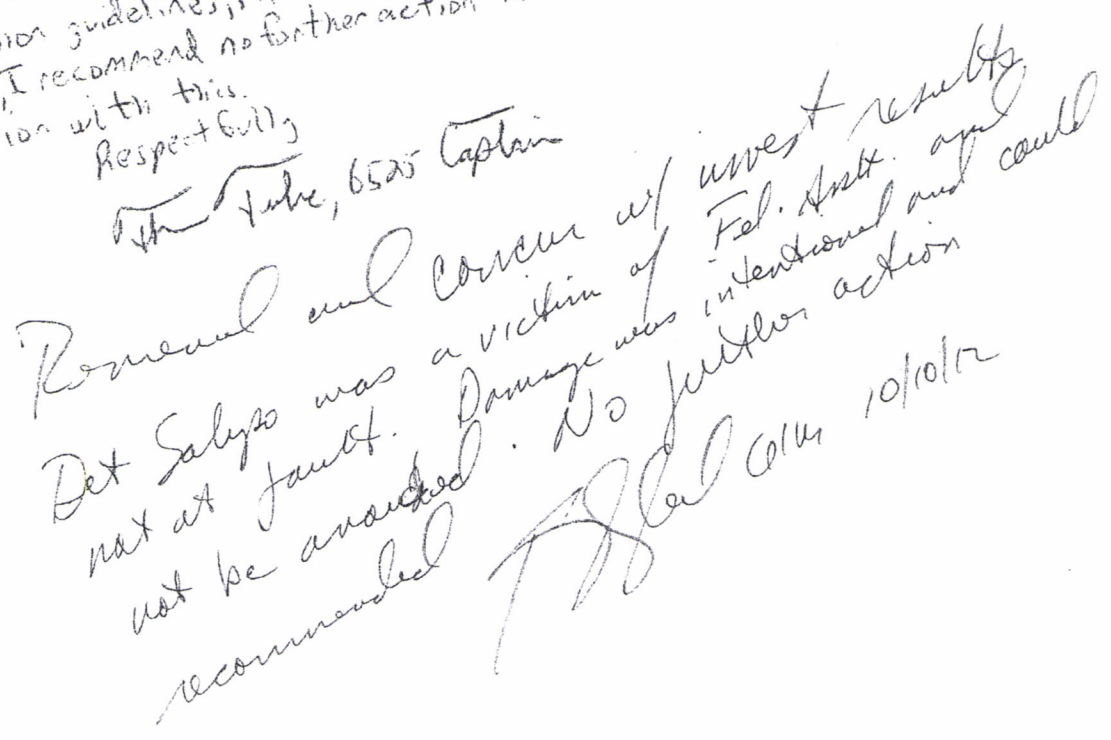 ion guidelines,
I recommend no further action
ion with this.
Respectfully
6525 Captain
Reviewed and concur w/ invest results
Det Salyso was a victim of Fel. Aslt. and
not at fault. Damage was intentional and could
not be avoided. No further action
recommended 10/10/12